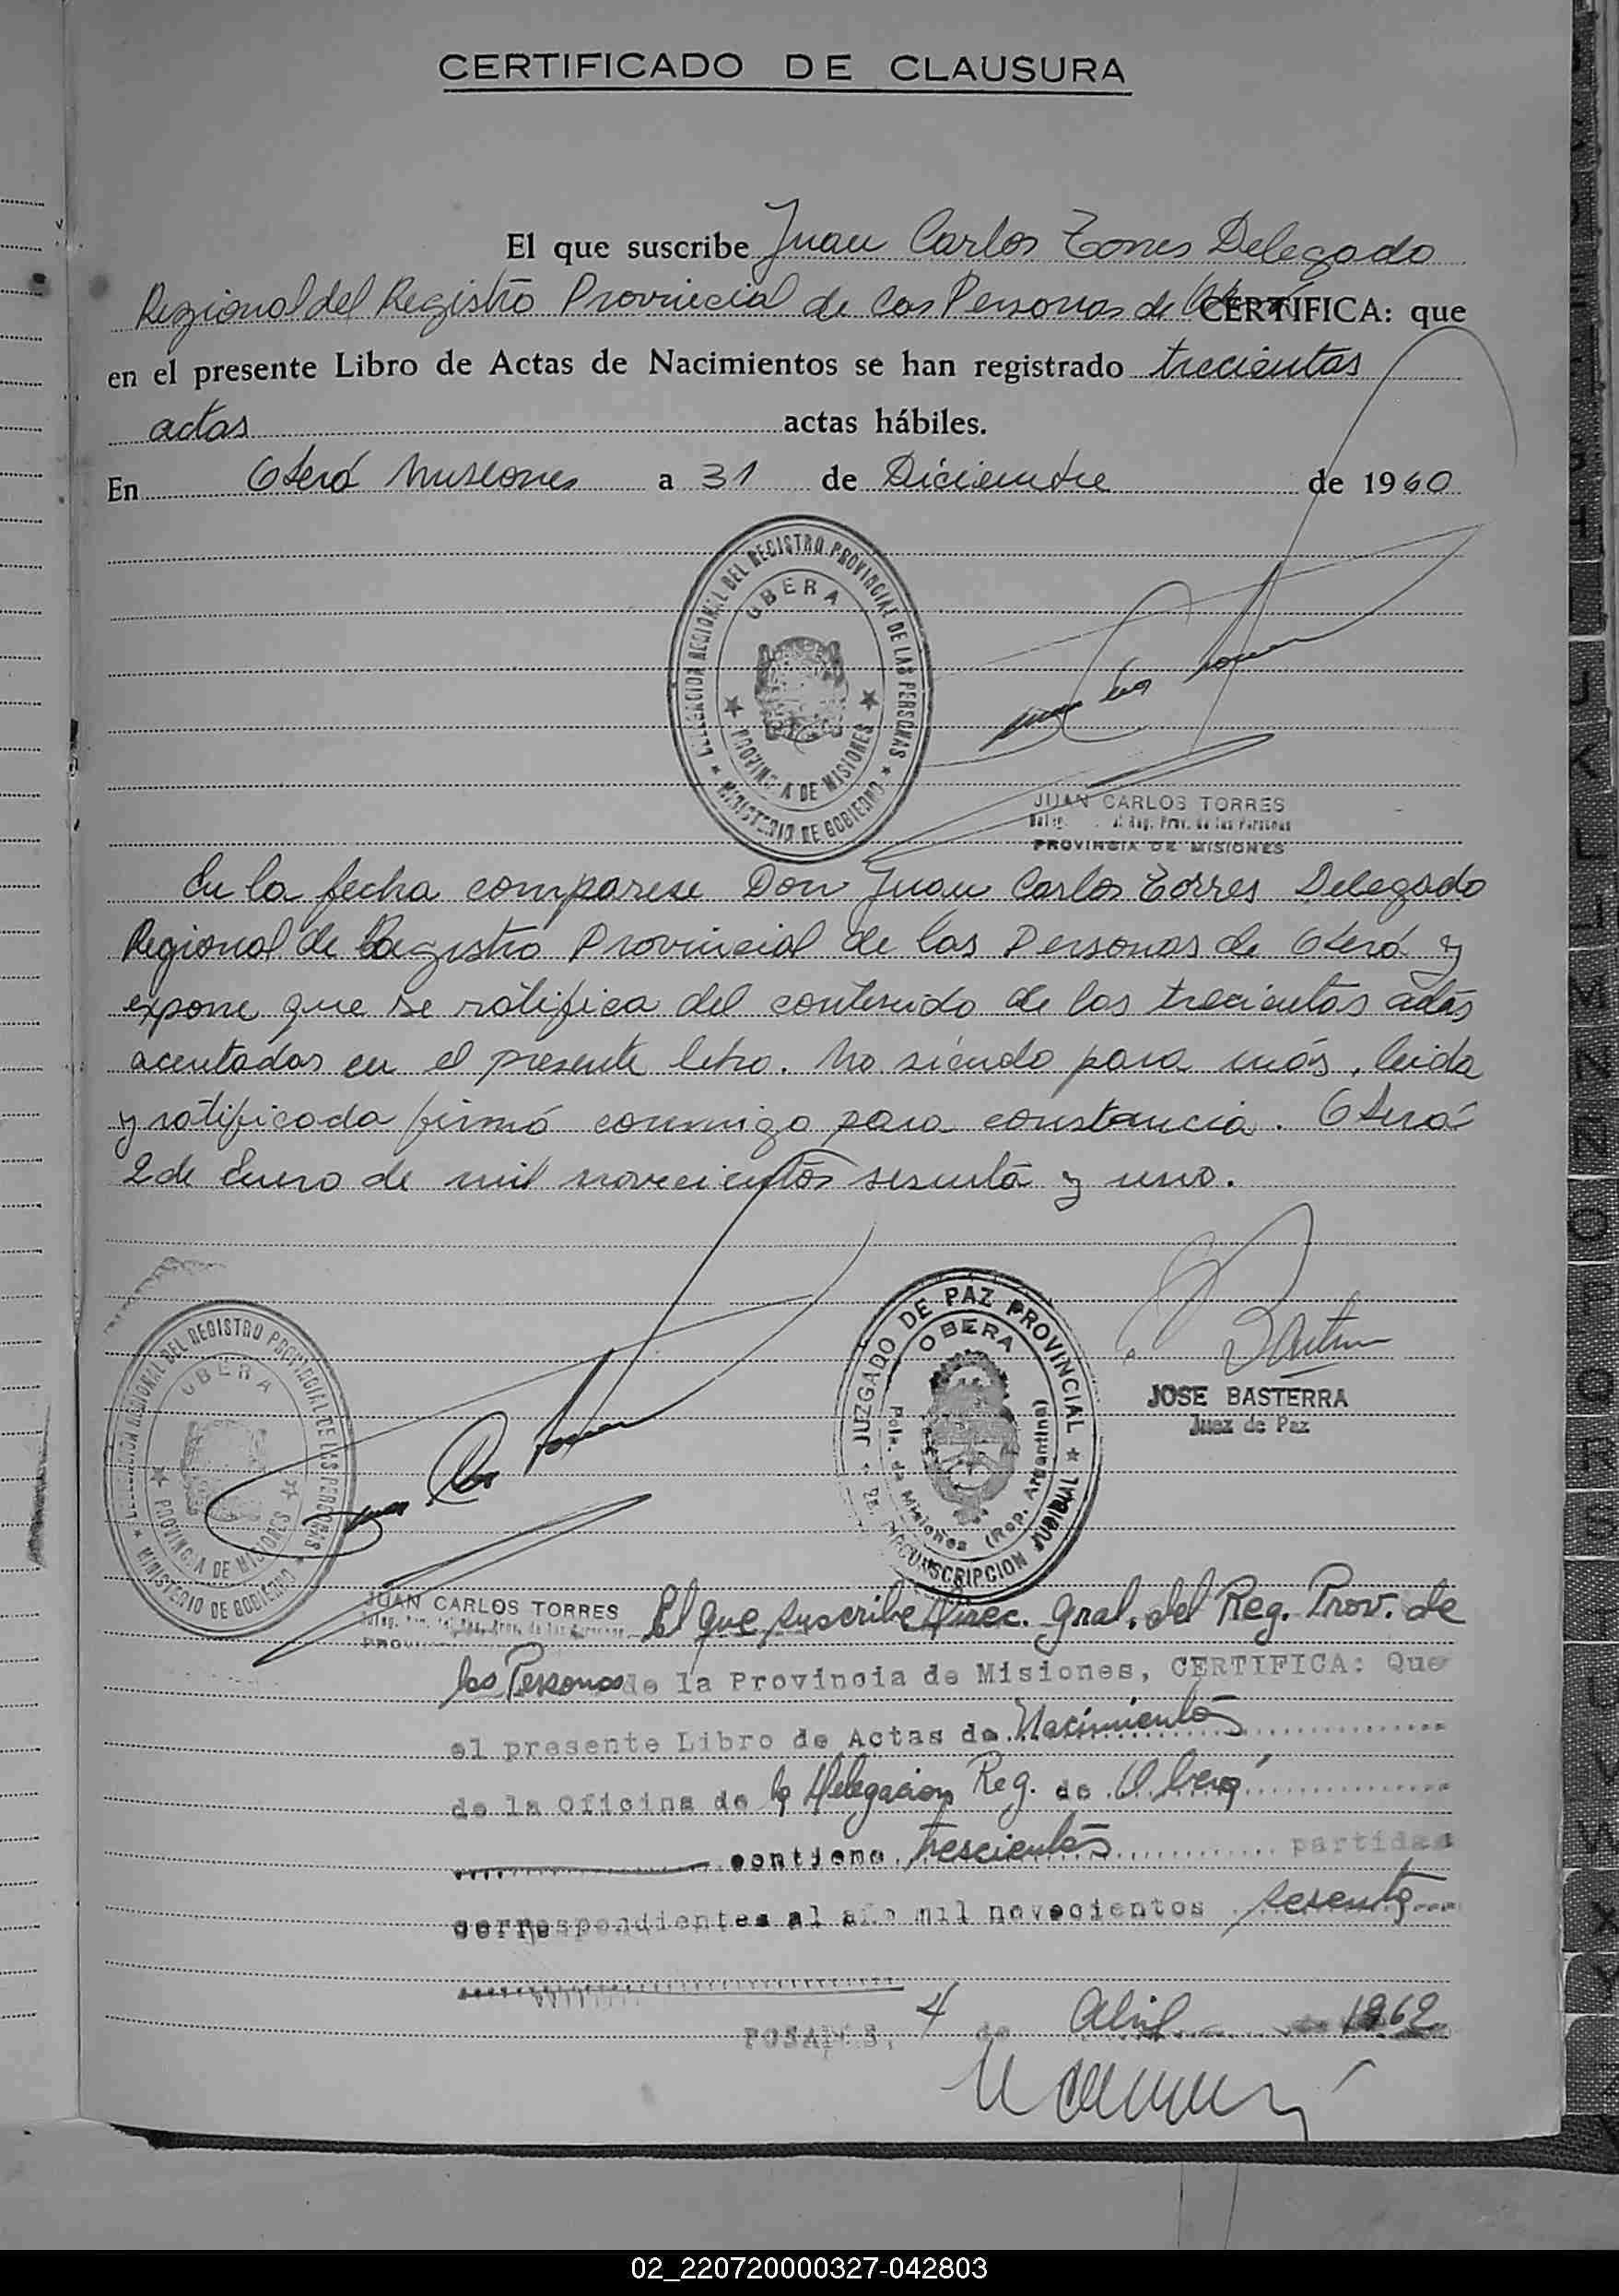 CERTIFICADO DE CLAUSURA
El que suscribe Juan Carlos Torres Delegado
Regional del Registro Provincial de las Personas de CERTIFICA: que
en el presente Libro de Actas de Nacimientos se han registrado trecientas
actas actas hábiles.
En Oberá Misiones a 31 de Diciembre de 1960
DELEGACION REGIONAL DEL REGISTRO PROVINCIAL DE LAS PERSONAS
OBERA
PROVINCIA DE MISIONES
MINISTERIO DE GOBIERNO
JUAN CARLOS TORRES
Reg. Prov. de las Personas
PROVINCIA DE MISIONES
En la fecha comparese Don Juan Carlos Torres Delegado
Regional de Registro Provincial de las Personas de Oberá y
expone que se ratifica del contenido de las trecientas actas
acentadas en el presente libro. No siendo para más, leida
y ratificada firmó conmigo para constancia. Oberá
2 de Enero de mil novecientos sesenta y uno.
DELEGACION REGIONAL DEL REGISTRO PROVINCIAL DE LAS PERSONAS
OBERA
PROVINCIA DE MISIONES
MINISTERIO DE GOBIERNO
JUZGADO DE PAZ PROVINCIAL
OBERA
Pcia. de Misiones (Rep. Argentina)
CIRCUNSCRIPCION JUDICIAL
Basterra
JOSE BASTERRA
Juez de Paz
JUAN CARLOS TORRES
El que suscribe Direc. Gral. del Reg. Prov. de
las Personas de la Provincia de Misiones, CERTIFICA: Que
el presente Libro de Actas de Nacimientos
de la Oficina de la Delegacion Reg. de Oberá
contiene trescientas partidas
correspondientes al año mil novecientos sesenta
POSADAS, 4 de Abril de 1962
02_220720000327-042803